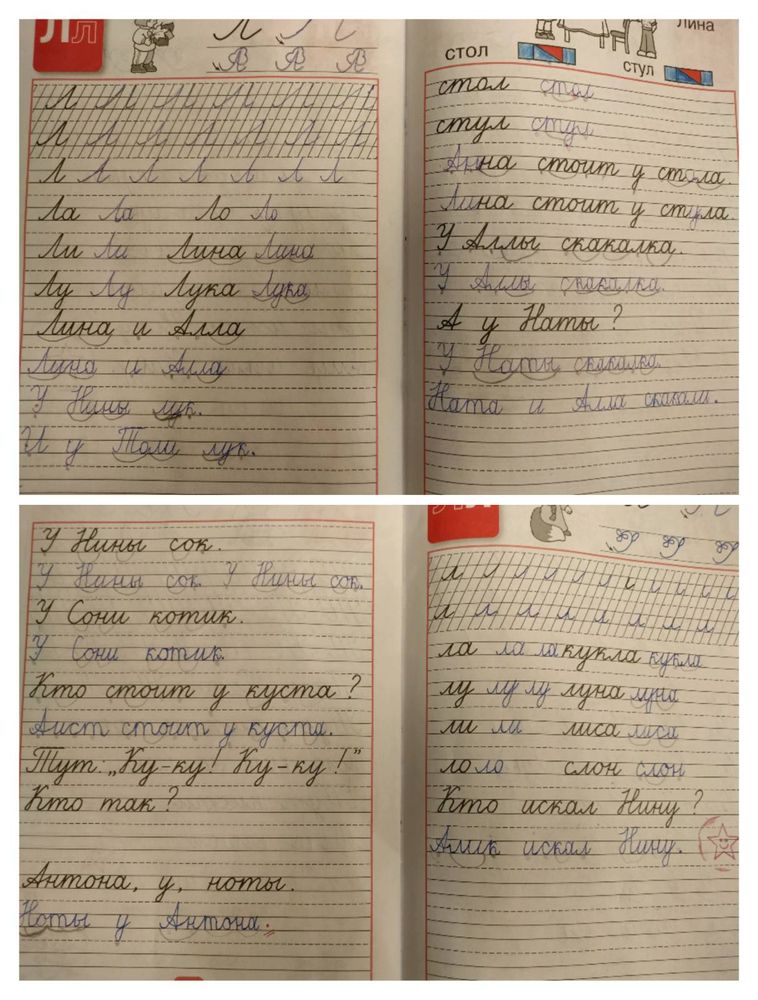 Лл
Л
Л
Л Л Л Л Л Л Л
Ла Ла Ло Ло
Ли Ли Лина Лина
Лу Лу Лука Лука
Лина и Алла
Лина и Алла
У Нины лук.
И у Толи лук.
Лина
стол
стул
стол стол
стул стул
Анна стоит у стола.
Лина стоит у стула.
У Аллы скакалка.
У Аллы скакалка.
А у Наты?
У Наты скакалка.
Ната и Алла скакали.
У Нины сок.
У Нины сок. У Нины сок.
У Сони котик.
У Сони котик.
Кто стоит у куста?
Аист стоит у куста.
Тут: „Ку-ку! Ку-ку!"
Кто так?
Антона, у, ноты.
Ноты у Антона.
Лл
л
л л л л л л л
ла ла ла кукла кукла
лу лу лу луна луна
ли ли лиса лиса
ло ло слон слон
Кто искал Нину?
Алик искал Нину.